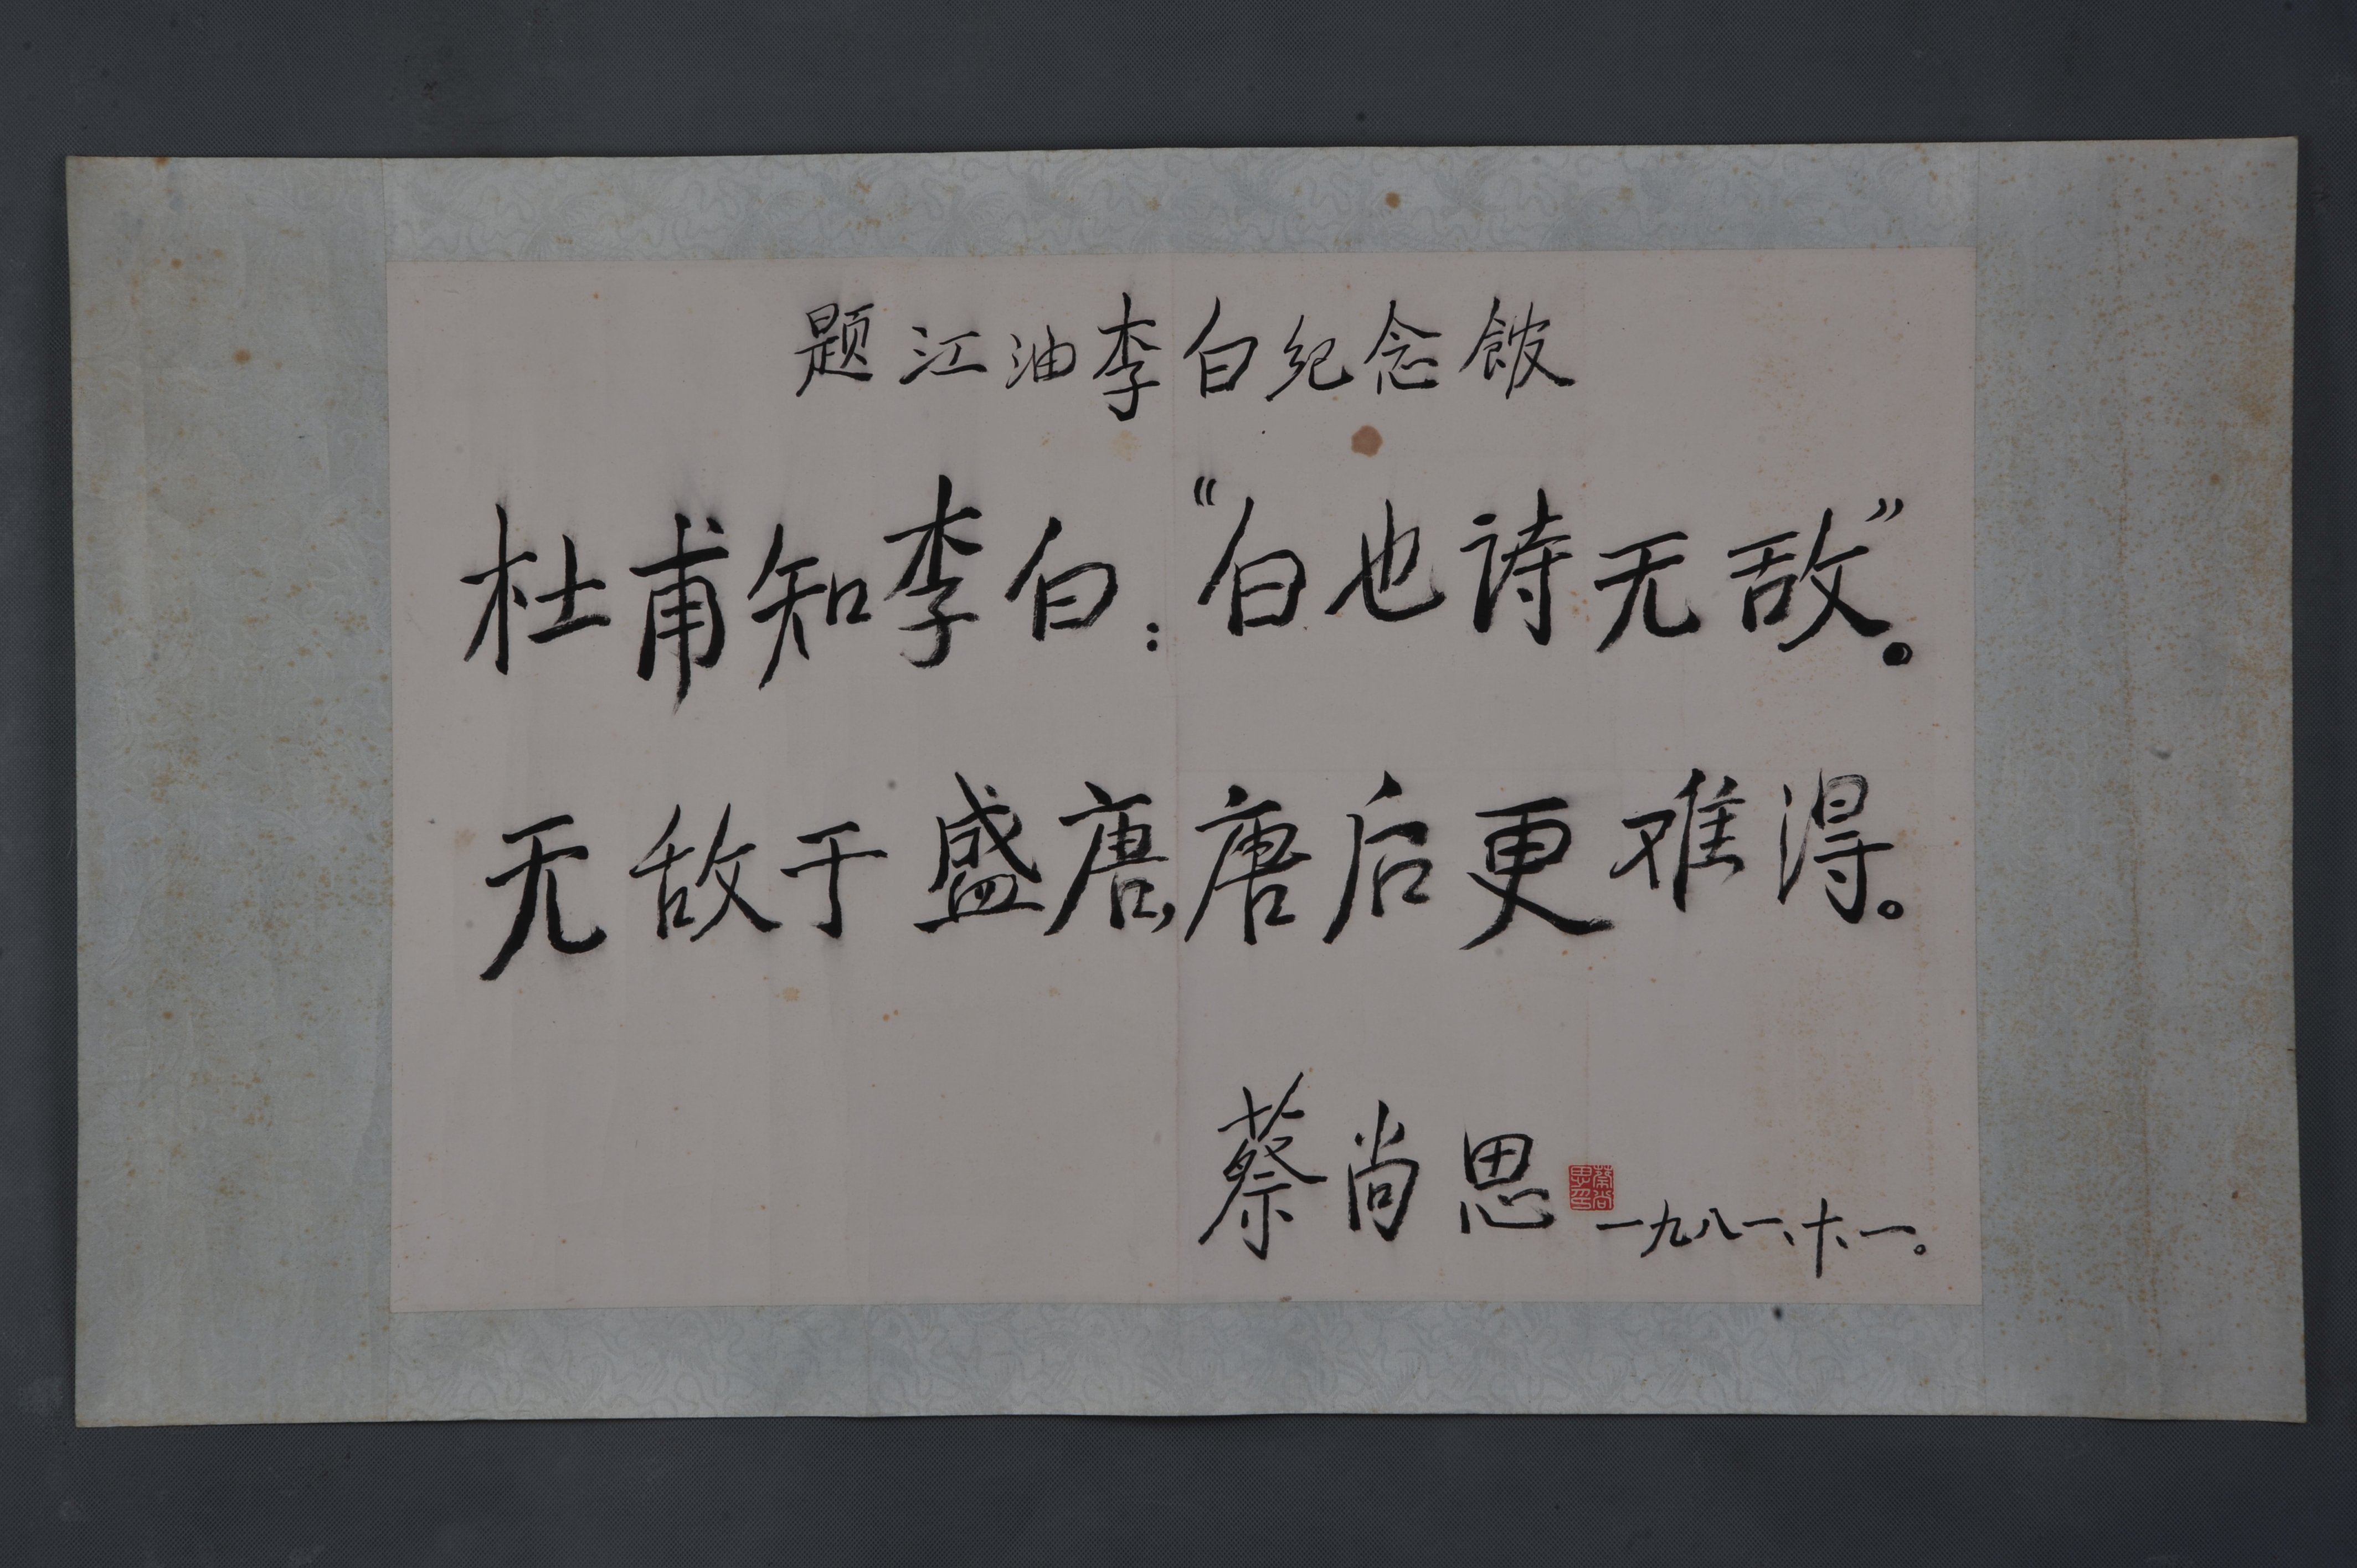 题江油李白纪念馆
杜甫知李白：“白也诗无敌”。
无敌于盛唐，唐后更难得。
蔡尚思
蔡尚思印
一九八一、十、一。